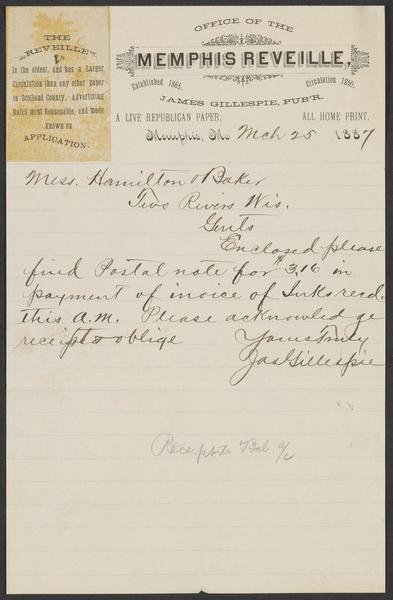 THE
REVEILLE
Is the oldest, and has a Larger
Circulation than any other paper
in Scotland County. Advertising
Rates most Reasonable, and made
KNOWN ON
APPLICATION.
OFFICE OF THE
MEMPHIS REVEILLE,
Established 1865. Circulation 1250.
JAMES GILLESPIE, PUB'R.
A LIVE REPUBLICAN PAPER. ALL HOME PRINT.
Memphis, Mo Mch 25 1887
Mess. Hamilton & Baker
Two Rivers Wis.
Gents
Enclosed please
find Postal note for $3.16 in
payment of invoice of Inks recd.
this A.M. Please acknowledge
receipt & oblige Yours Truly
Jas Gillespie
Receipt Bal. a/c